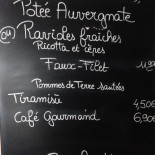 Potée Auvergnate
ou Ravioles fraîches
Ricotta et Cèpes
Faux-Filet 11,90
Pommes de Terre sautées
Tiramisù 4,50€
Café Gourmand 6,90€